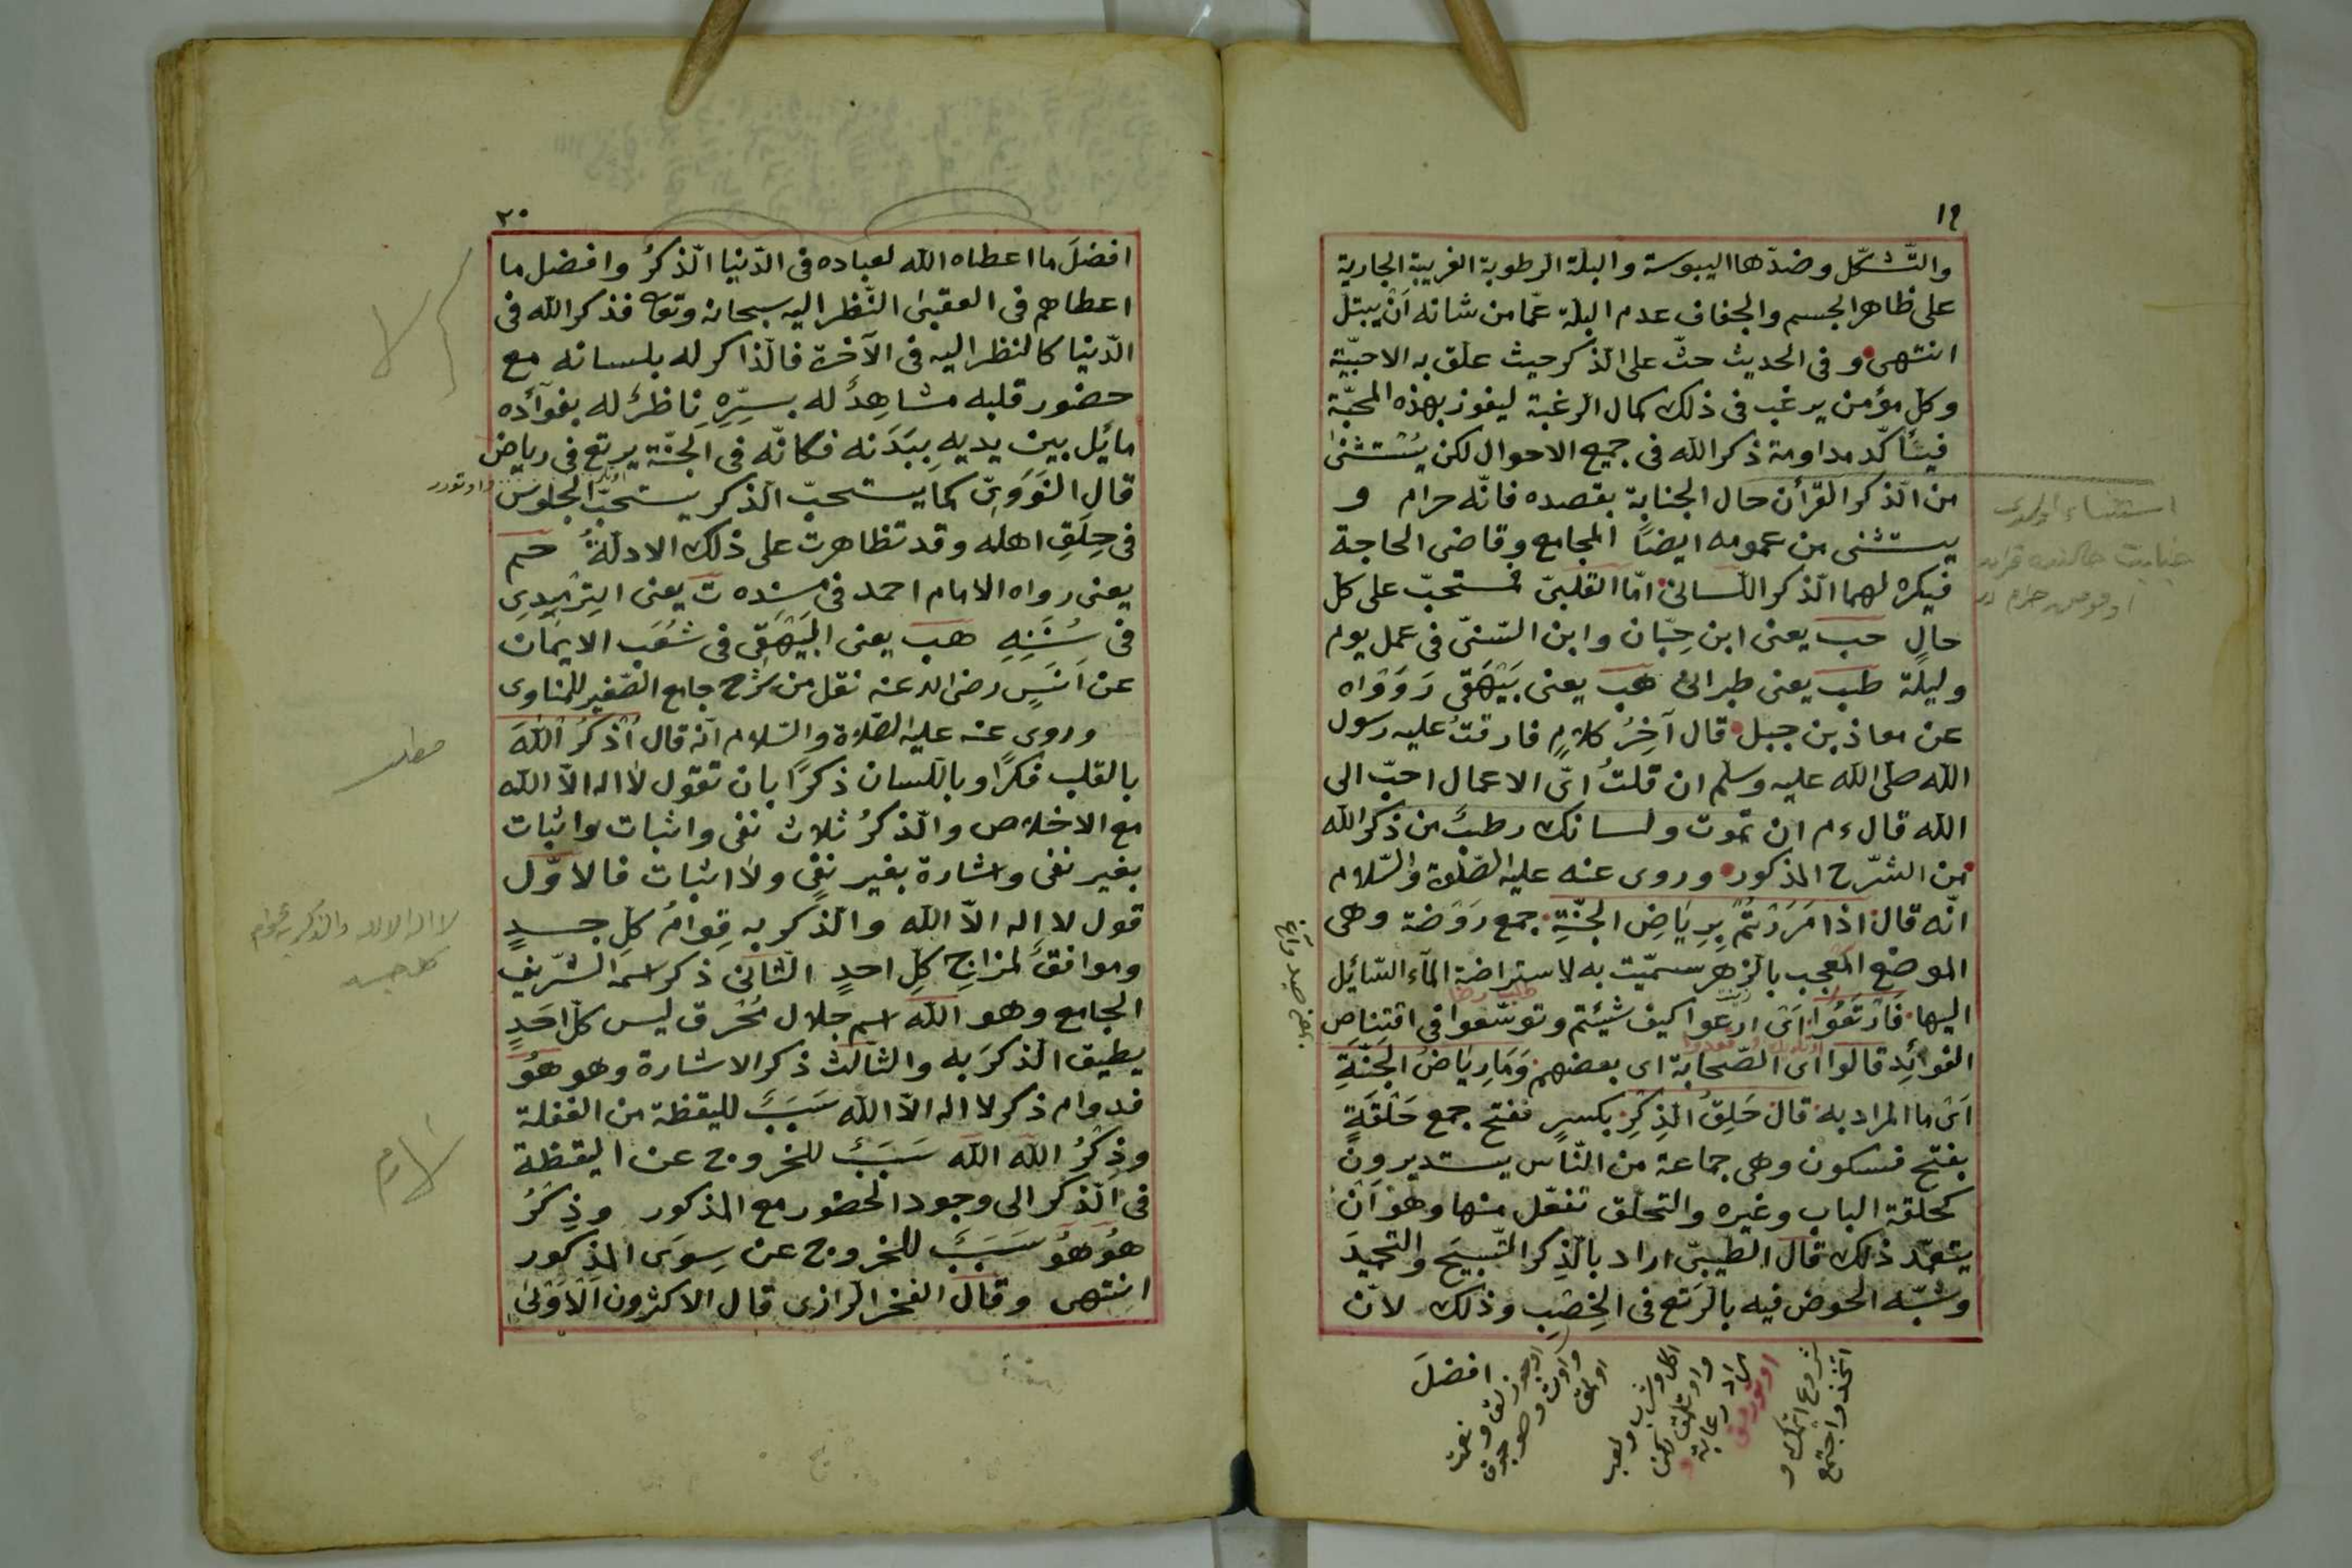 ١٩
والتّشكّل وضدّها اليبوسة والبلة الرطوبة الغريبة الجارية
على ظاهر الجسم والجفاف عدم البلة عمّا من شانه اَنْ يبتل
انتهى وفى الحديث حثّ على الذكر حيث علق به الاحبّية
وكل مؤمن يرغب فى ذلك كمال الرغبة ليفوز بهذه المحبّة
فيتأكّد مداومة ذكر الله فى جميع الاحوال لكن يُسْتثنىٰ
من الذّكر القرأن حال الجنابة بقصده فانّه حرام و
يستثنى من عمومه ايضاً المجامع وقاضى الحاجة
فيكره لهما الذّكر اللّسانىّ امّا القلبىّ فمستحبّ على كل
حالٍ حب يعنى ابن حِبّان وابن السّنىّ فى عمل يوم
وليلة طب يعنى طبرانى هب يعنى بَيْهَقى رَوَوَاه
عن معاذ بن جبل قال آخِرُ كلامٍ فارقتُ عليه رسول
الله صلى الله عليه وسلم ان قلتُ اىّ الاعمال احبّ الى
الله قال ءم ان تموت ولسانك رطبٌ من ذكر الله
من الشّرح المذكور وروى عنه عليه الصّلوة والسّلام
انّه قال اذا مَرَرْتُمْ بِرِيَاضِ الجنّةِ جمع رَوْضة وهى
الموضع المُعجب بالزهر سمّيت به لاستراضة المآء السّائل
اليها فَارْتَعُوا اَىْ ارعوا كيف شيئتم وتوسّعوا فى اقتِناصِ
الفوائِد قالوا اى الصّحابة اى بعضهم وَمَا رِيَاضُ الجنّةِ
اَىْ ما المراد به قال حَلِقُ الذِكْرِ بكسرٍ ففتح جمع حَلْقَةٍ
بفتح فسكون وهى جماعة من النّاس يستديرون
كحلقة الباب وغيره والتحلق تفعّل منها وهو اَنْ
يتعمّد ذلك قال الطيبىّ اراد بالذِكر التّسبيحَ والتحميدَ
وشبّه الخوض فيه بالرَتع فى الخِصْبِ وذلك لانّ
افضلَ
استثناء
٢٠
افضلَ ما اعطاه الله لعباده فى الدّنيا الذّكرُ وافضل ما
اعطاهم فى العقبىٰ النّظر اليه سبحانه وتعا فذكر الله فى
الدّنيا كالنظر اليه فى الآخرة فالذّاكر له بلسانه مع
حضور قلبه مشاهِدٌ له بسِرِّهِ نِاظرٌ له بفوآئده
مائل بين يديهِ ببَدَنه فكانّه فى الجنّة يرتع فى رياض
قال النَوَوِىّ كما يستحبّ الذكر يستحبّ الجلوس
فى حِلَقِ اهله وقد تظاهرت على ذلك الادلّةُ حم
يعنى رواه الامام احمد فى مسنِده ت يعنى الِترْمِدِى
فى سُنَنِهِ هب يعنى البَيْهَقِى فى شُعَب الايمَان
عن اَنَسٍ رضى الله عنه نقل من شرح جامع الصّغير للمناوى
وروى عنه عليه الصّلاة والسّلام انّه قال اُذكُر اللّٰهَ
بالقلب فكرًا وباللّسان ذكرًا بان تقول لا اله الّا الله
مع الاخلاص والذّكرُ ثلاث نفى واثبات واثبات
بغير نفى واشارة بغير نفى ولا اثبات فالاوّل
قول لا اِله الّا الله والذّكر به قِوامُ كلِّ جسدٍ
وموافقٌ لمزاجِ كلِّ احدٍ الثّانى ذكر اسمه الشّريف
الجامع وهو الله اسم جلال مُحْرق ليس كلّ احَدٍ
يطيق الذكرَ به والثالث ذكر الاشارة وهو هُوَ
فدوام ذكر لا اله الّا الله سَبَبٌ لليقظة من الغفلة
وذِكرُ الله الله سَبَبٌ للخروج عن اليقظة
فى الذّكر الى وجود الحضور مع المذكور وذِكرُ
هُوَ هُوَ سَبَبٌ للخروج عن سِوَى المذكور
انتهى وقال الفخر الرازى قال الاكثرون الْاَوْلىٰ
مطلب
لا اله الا الله والذكر به قوام
كل جسد